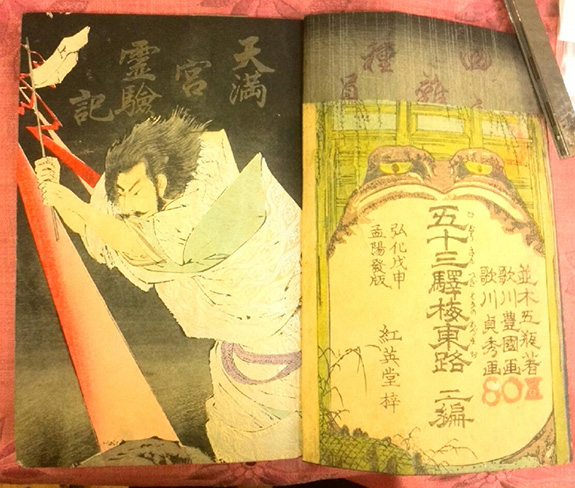 天満
宮
霊験
記
種
員
並木五瓶著
歌川豊國画
歌川貞秀画
80
五十三驛梅東路 二編
弘化戊申
孟陽發版
紅英堂梓